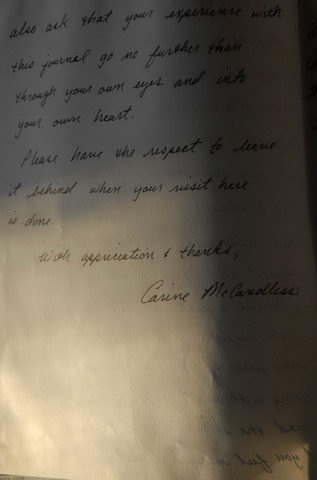 also ask that your experience with
this journal go no further than
through your own eyes and into
your own heart.
Please have the respect to leave
it behind when your visit here
is done.
With appreciation & thanks,
Carine McCandless